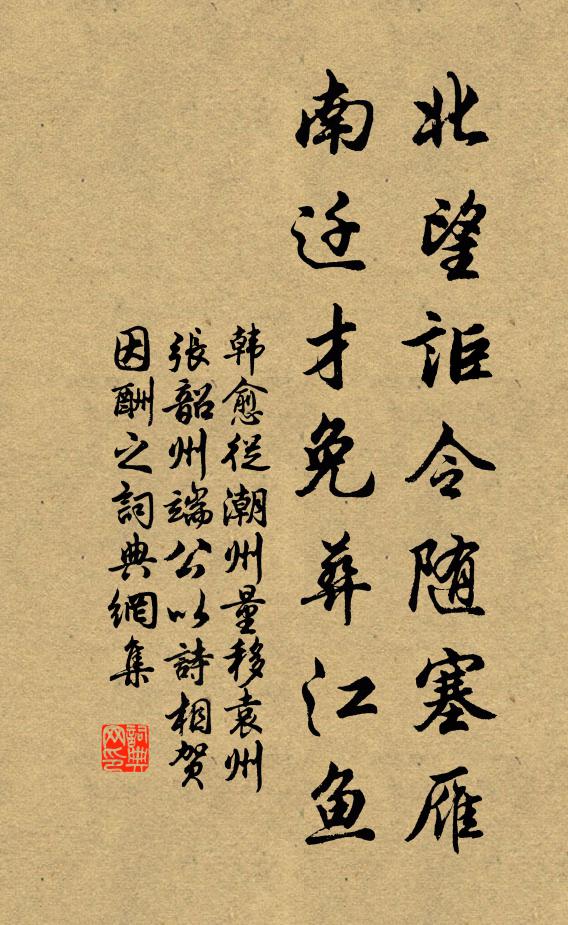 北望詎令随塞雁
南迁才免葬江魚
韩愈從潮州量移袁州
張韶州端公以詩相贺
因酬之詞典網集
詞典网印